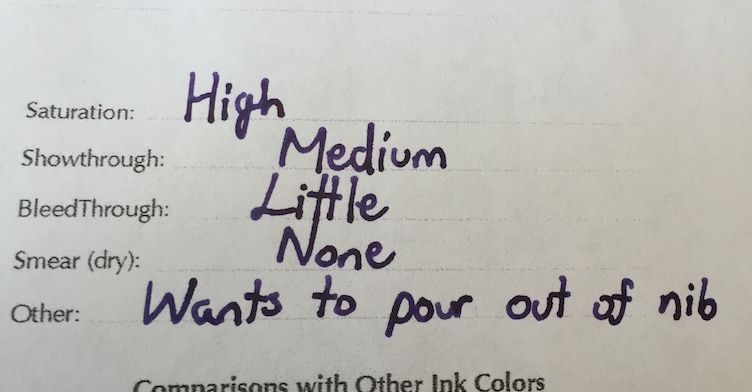 Saturation: High
Showthrough: Medium
BleedThrough: Little
Smear (dry): None
Other: Wants to pour out of nib
Comparisons with Other Ink Colors